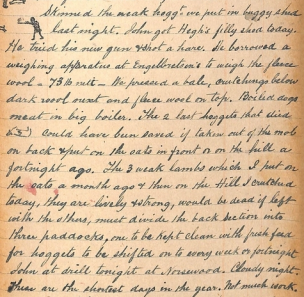 Skinned the weak hogg^t we put in buggy shed
last night. John got Hegh's filly shod today.
He tried his new gun & shot a hare. He borrowed a
weighing apparatus at Engelbretsen's to weigh the fleece
wool = 73 lb nett – We pressed a bale, crutchings below
dark wool next and fleece wool on top. Boiled dogs
meat in big boiler. The 2 last hoggets that died
could have been saved if taken out of the mob
on back & put on the oats in front or on the hill a
fortnight ago. The 3 weak lambs which I put on
the oats a month ago & then on the Hill I crutched
today, they are lively & strong, would be dead if left
with the others, must divide the back section into
three paddocks, one to be kept clean with fresh feed
for hoggets to be shifted on to every week or fortnight.
John at drill tonight at Norsewood. Cloudy night.
These are the shortest days in the year. Not much work.